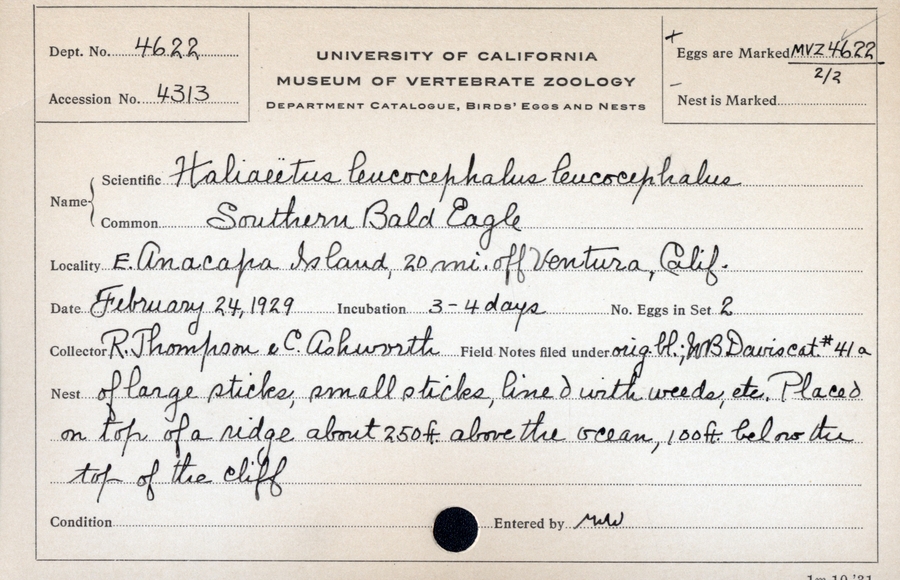 Dept. No. 4622
Accession No. 4313
UNIVERSITY OF CALIFORNIA
MUSEUM OF VERTEBRATE ZOOLOGY
DEPARTMENT CATALOGUE, BIRDS' EGGS AND NESTS
+ Eggs are Marked MVZ 4622
2/2
– Nest is Marked
Name
Scientific Haliaeëtus leucocephalus leucocephalus
Common Southern Bald Eagle
Locality E. Anacapa Island, 20 mi. off Ventura, Calif.
Date February 24, 1929 Incubation 3-4 days No. Eggs in Set 2
Collector R. Thompson & C. Ashworth Field Notes filed under orig. bl.; WB Davis cat. #41a
Nest of large sticks, small sticks, lined with weeds, etc. Placed
on top of a ridge about 250 ft. above the ocean, 100 ft. below the
top of the cliff
Condition Entered by
1m 10 '31